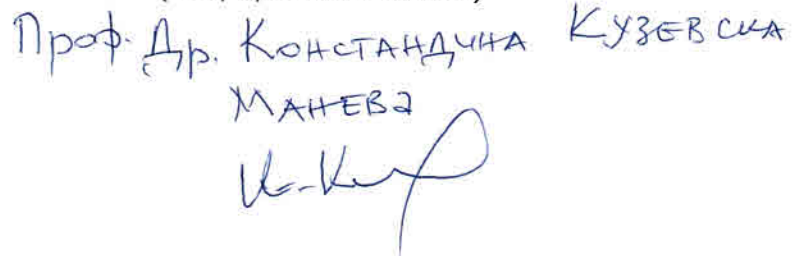 Проф. Др. КОНСТАНДИНА КУЗЕВСКА
МАНЕВА